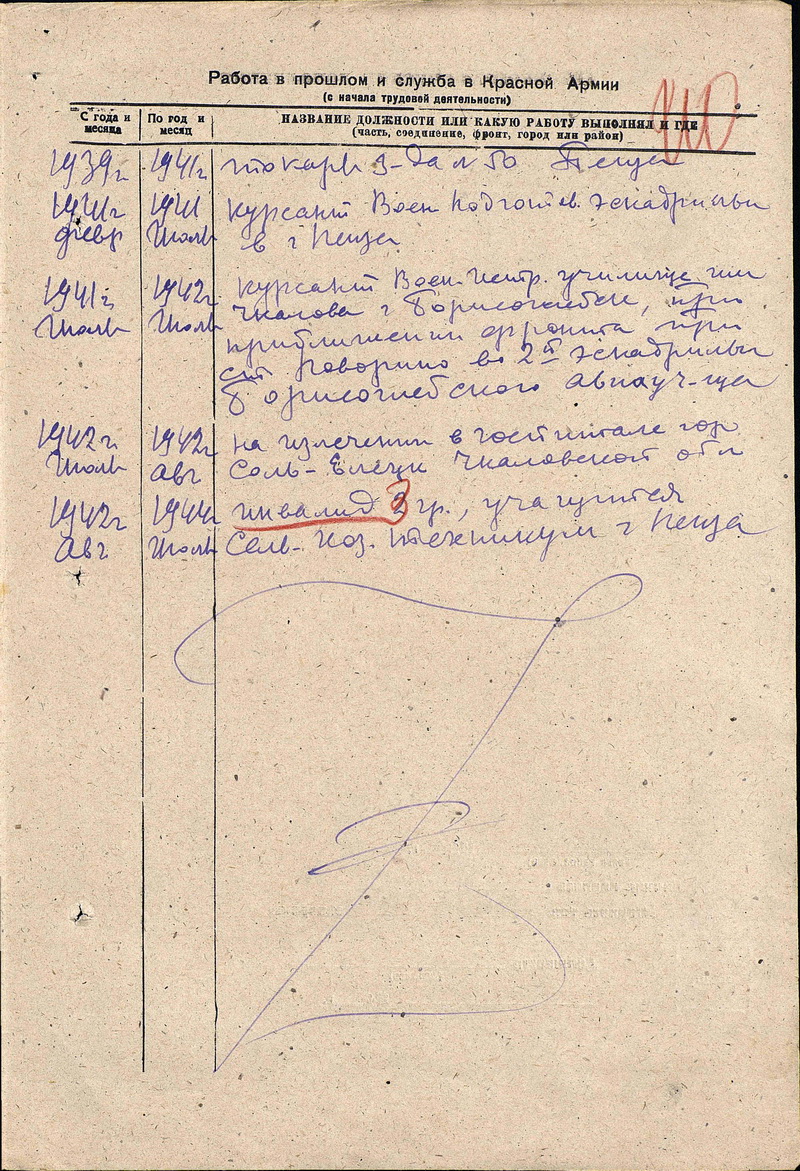 Работа в прошлом и служба в Красной Армии
(с начала трудовой деятельности)
С года и месяца
По год и месяц
НАЗВАНИЕ ДОЛЖНОСТИ ИЛИ КАКУЮ РАБОТУ ВЫПОЛНЯЛ И ГДЕ
(часть, соединение, фронт, город или район)
1939г 1941г токарь з-да № 50 Пенза
1941г 1941 курсант Воен подготов. эскадрильи
февр Июль в г Пенза
1941г 1942г курсант Воен. училище им
Июль Июль Чкалова г Борисоглебск, при
приближении фронта при
ст Поворино во 2й эскадрильи
Борисоглебского авиауч-ща
1942г. 1942г на излечении в госпитале гор
Июль Авг Соль-Елецк Чкаловской обл
1942г 1944г инвалид 3 гр., учащийся
Авг Июль Сель-хоз. техникум г Пенза